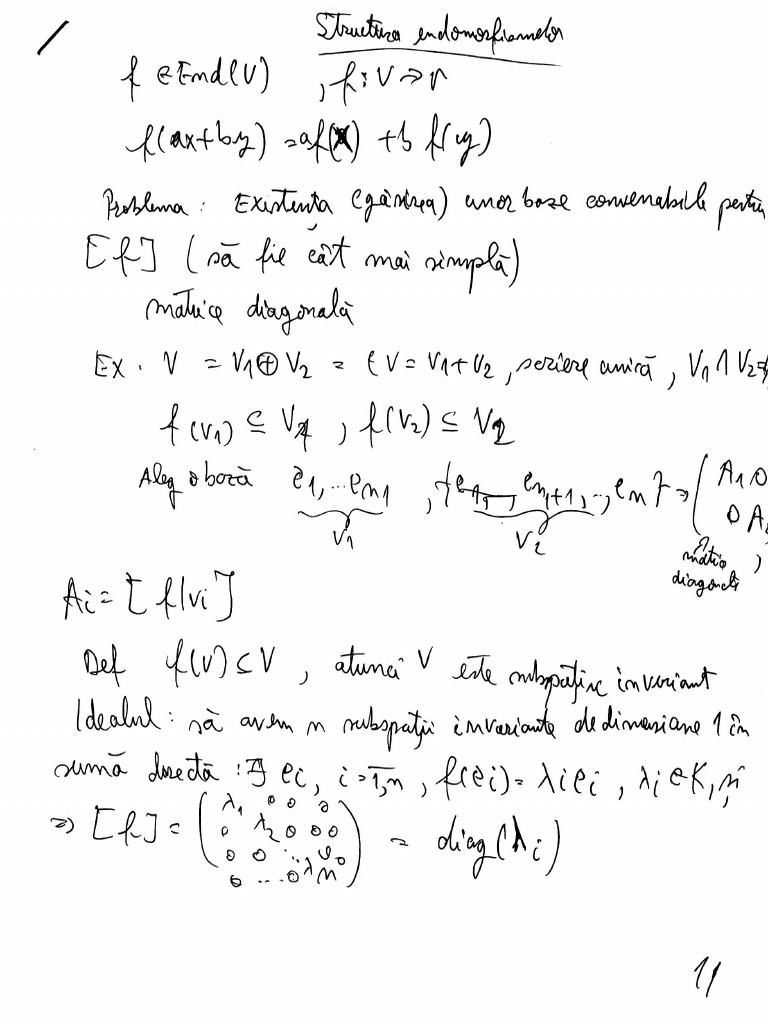 Structura endomorfismelor
f ∈ End(V) , f: V → V
f(ax+by) = af(x) + b f(y)
Problema: Existenta (găsirea) unor baze convenabile pentru
[f] (să fie cât mai simplă)
matrice diagonală
Ex. V = V1⊕V2 = { V = V1+V2, scriere unică, V1 ∩ V2
f(V1) ⊆ V1 , f(V2) ⊆ V2
Aleg o bază e1, ... en1 , en1+1, .., en } ⇒ ( A1 0
V1 V2 0 A
matrice diagonală ,
Ai = [f/vi]
Def f(V) ⊆ V , atunci V este subspațiu invariant
Idealul: să avem n subspații invariante de dimensiune 1 în
sumă directă : ∃ ei, i=1,n , f(ei) = λi ei , λi ∈ K,
⇒ [f] = ( λ1 0 0 0
0 λ2 0 0 0
0 0 ... 0
0 ... 0 λn ) = diag(λi)
1